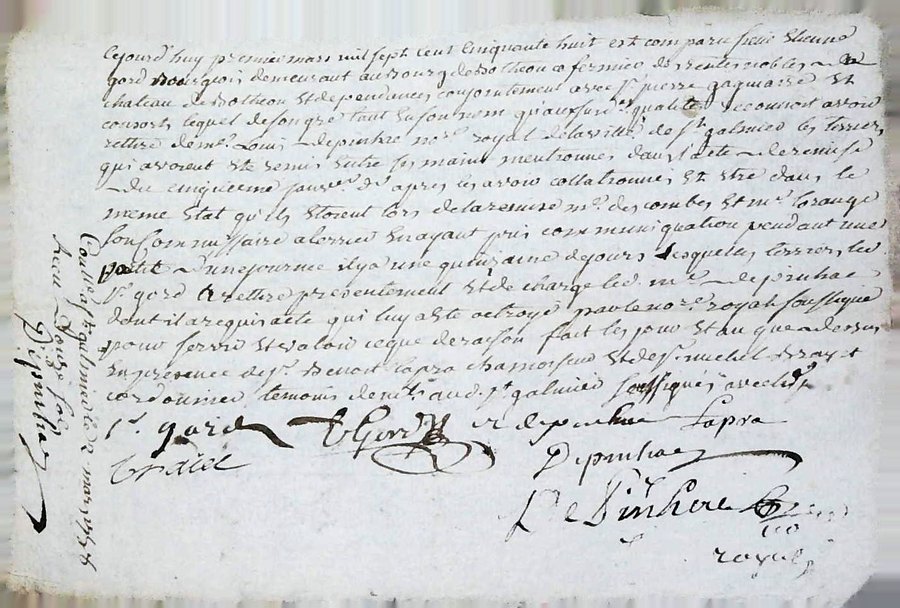 Cejourd'huy premier mars mil sept cent cinquante huit est comparu sieur Etienne
gord Bourgeois demeurant au Bourg de Botheon cofermier des rentes nobles du
chateau de Botheon et dependances conjointement avec sr pierre gagniaire et
consorts lequel de son gré tant en son nom qu'aux susd. qualités reconnoit avoir
retiré de me Louis depinhac nre royal de la ville de st galmier les terriers
qui avoient eté remis entre ses mains mentionnés dans l'acte de remise
du cinquieme janvier dr apres les avoir collationnés et etre dans le
meme etat qu'ils etoient lors de la remise mr des combes et mr lorange
son commissaire a terrier en ayant pris communiquation pendant une
partie d'une journée il y a une quinzaine de jours lesquels terriers led.
sr gord a retiré presentement et decharge led. me depinhac
dont il a requis acte qui luy a eté octroyé par le nore royal soussigné
pour servir et valoir ce que de raison fait les jour et an que dessus
en presence de sr Benoit Lapra chamoiseur et de sr michel
cordonnier temoins dud. st galmier soussignés avec led. sr
sr gord E Gord et depinhac Lapra
Depinhac
De Pinhac
royal
Contlé a st galmier le 2 mars 1758
Reçu douze sols
Depinhac